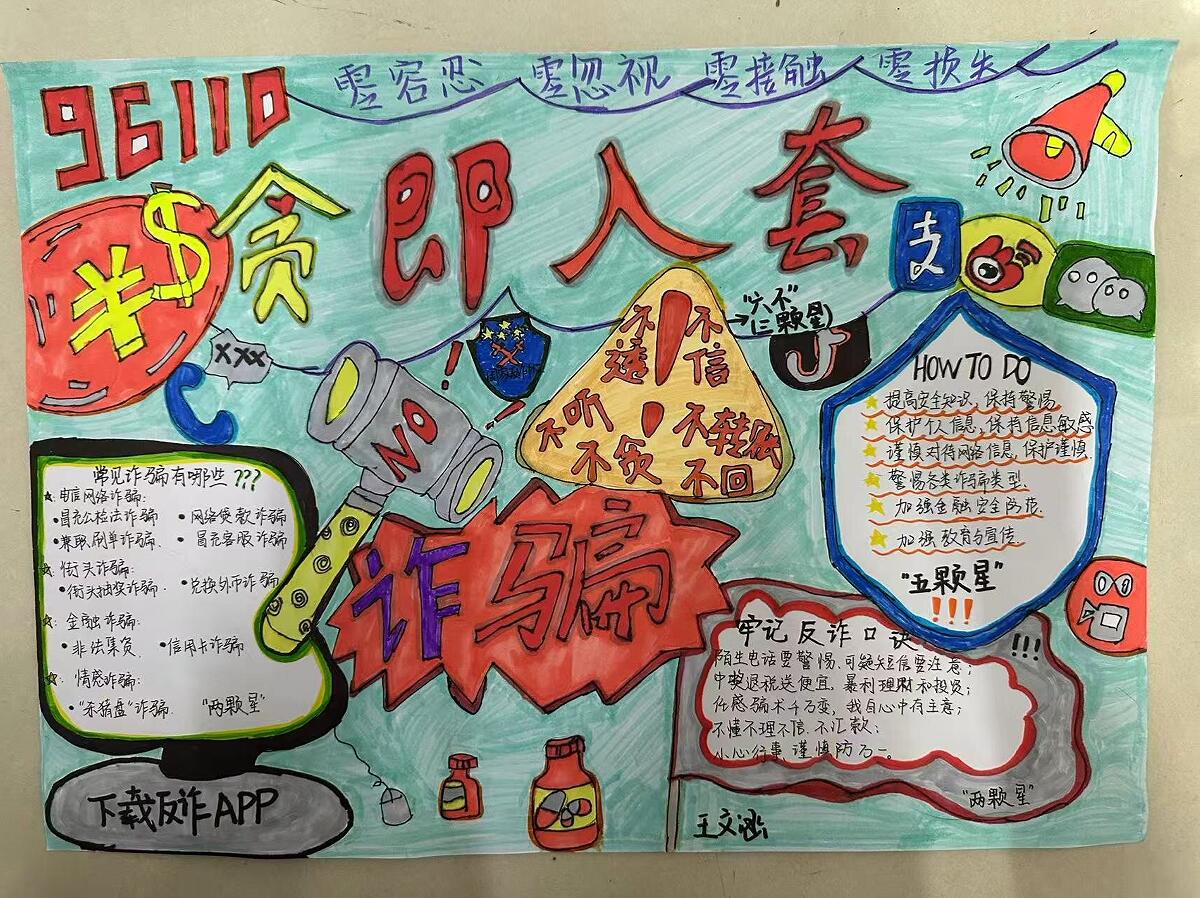 96110
零容忍 零忽视 零接触 零损失
贪即入套
¥$
xxx
支
"六不"
(三颗星)
不透 不信
不听 不轻账
不贪 不回
NO
诈骗
常见诈骗有哪些???
电信网络诈骗:
•冒充公检法诈骗 •网络贷款诈骗
•兼职刷单诈骗. •冒充客服诈骗
街头诈骗:
•街头抽奖诈骗. •兑换外币诈骗
金融诈骗:
•非法集资. •信用卡诈骗
情感诈骗:
•"杀猪盘"诈骗. "两颗星"
下载反诈APP
HOW TO DO
提高安全知识,保持警惕.
保护个人信息,保持信息敏感
谨慎对待网络信息,保护谨慎
警惕各类诈骗类型.
加强金融安全防范.
加强教育与宣传
"五颗星"
!!!
牢记反诈口诀 !!!
陌生电话要警惕,可疑短信要注意;
中奖退税送便宜,暴利理财和投资;
任感骗术千万变,我自心中有主意;
不懂不理不信.不汇款;
小心行事,谨慎防万一。
"两颗星"
王文涵